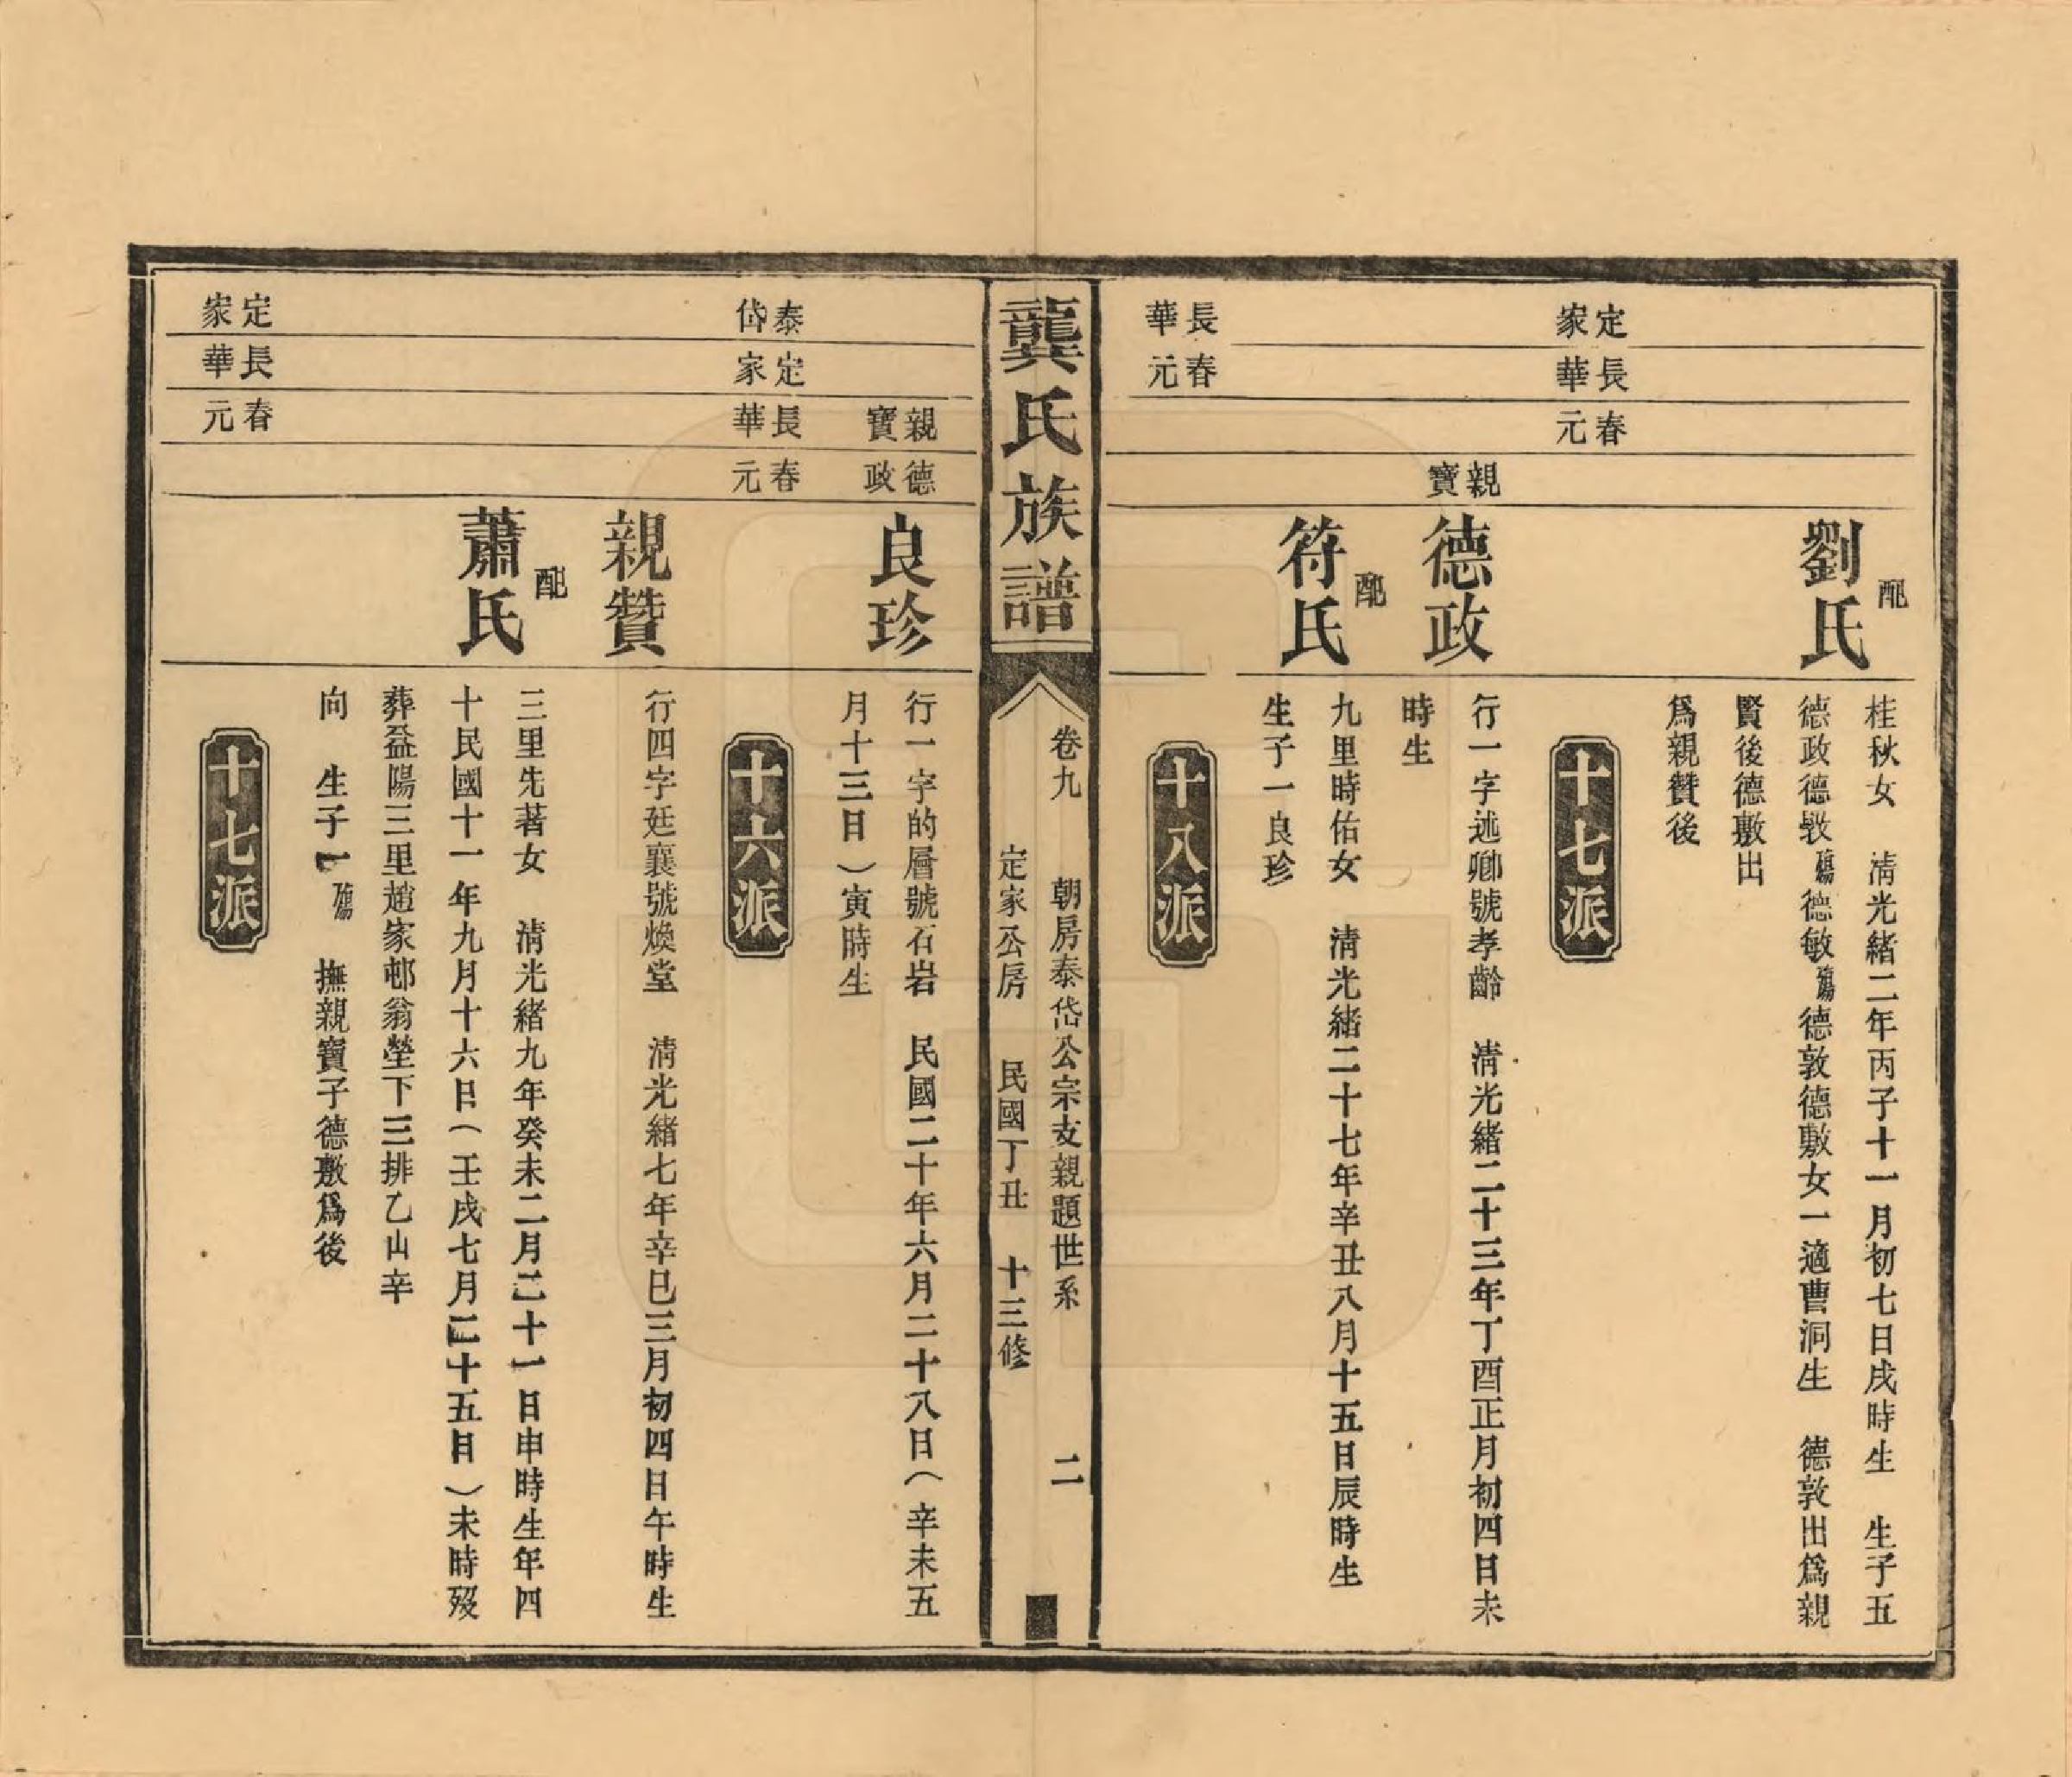 配劉氏
桂秋女　清光緒二年丙子十一月初七日戌時生　生子五
德政德敭殤德敏殤德敦德敷女一適曹洞生　德敦出爲親
賢後德敷出
爲親贊後
定家
長華
春元
十七派
親寶
德政
行一字述卿號孝齡　清光緒二十三年丁酉正月初四日未
時生
配符氏
九里時佑女　清光緒二十七年辛丑八月十五日辰時生
生子一良珍
長華
春元
十八派
龔氏族譜
卷九　朝房泰岱公宗支親題世系　二
定家公房　民國丁丑　十三修
親寶
德政
良珍
行一字的層號石岩　民國二十年六月二十八日（辛未五
月十三日）寅時生
泰岱
定家
長華
春元
十六派
親贊
行四字廷襄號煥堂　清光緒七年辛巳三月初四日午時生
配蕭氏
三里先著女　清光緒九年癸未二月二十一日申時生年四
十民國十一年九月十六日（壬戌七月二十五日）未時歿
葬益陽三里趙家邨翁塋下三排乙山辛
向　生子一殤　撫親寶子德敷爲後
定家
長華
春元
十七派